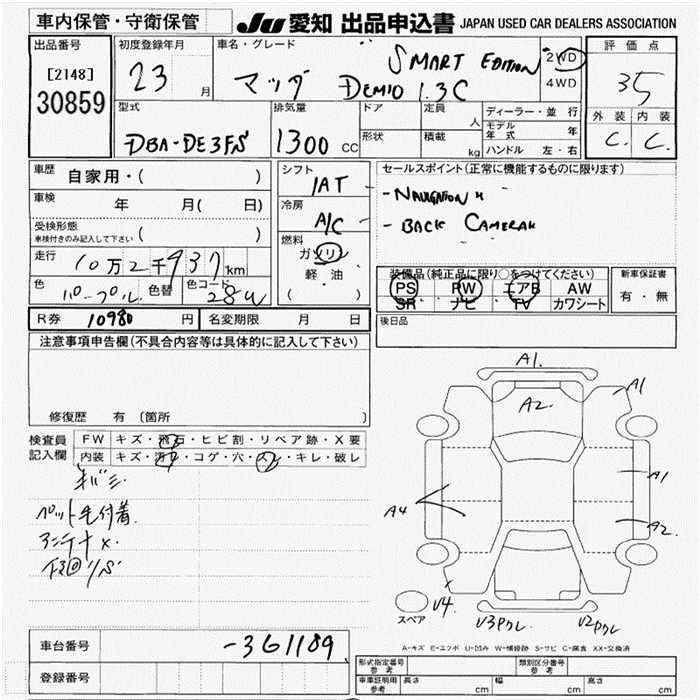 車内保管・守衛保管
JU 愛知 出品申込書 JAPAN USED CAR DEALERS ASSOCIATION
出品番号
[2148]
30859
初度登録年月
23 月
車名・グレード
マツダ DEMIO 1.3C
SMART EDITION
2WD
4WD
評価点
35
外装 内装
C. C.
型式
DBA-DE3FS
排気量
1300 CC
ドア
形状
定員 人
積載 kg
ディーラー・並行
モデル年式 年
ハンドル 左・右
車歴 自家用・( )
車検 年 月( 日)
受検形態
車検付きのみ記入して下さい ( )
走行 10万2千937km
色 パープル 色替 色コード 28W
シフト
IAT
冷房
A/C
燃料
ガソリン
軽・油
( )
セールスポイント(正常に機能するものに限ります)
- NAVIGATION
- BACK CAMERA
装備品(純正品に限り○をつけてください)
PS PW エアB AW
SR ナビ TV カワシート
新車保証書
有・無
R券 10980 円 名変期限 月 日
後日品
注意事項申告欄(不具合内容等は具体的に記入して下さい)
修復歴 有 [箇所 ]
検査員記入欄
FW キズ・飛石・ヒビ割・リペア跡・X要
内装 キズ・汚レ・コゲ・穴・スレ・キレ・破レ
キバミ
ペット毛付着
アンテナ×.
A1.
A2.
A1
A1
A2
A4
V4.
V3ワレ
V2ワレ
スペア
A-キズ E-エクボ U-凹み W-補修跡 S-サビ C-腐食 XX-交換済
車台番号 -361189
登録番号
形式指定番号 参考
類別区分番号 参考
車庫証明用 参考 長さ cm 幅 cm 高さ cm